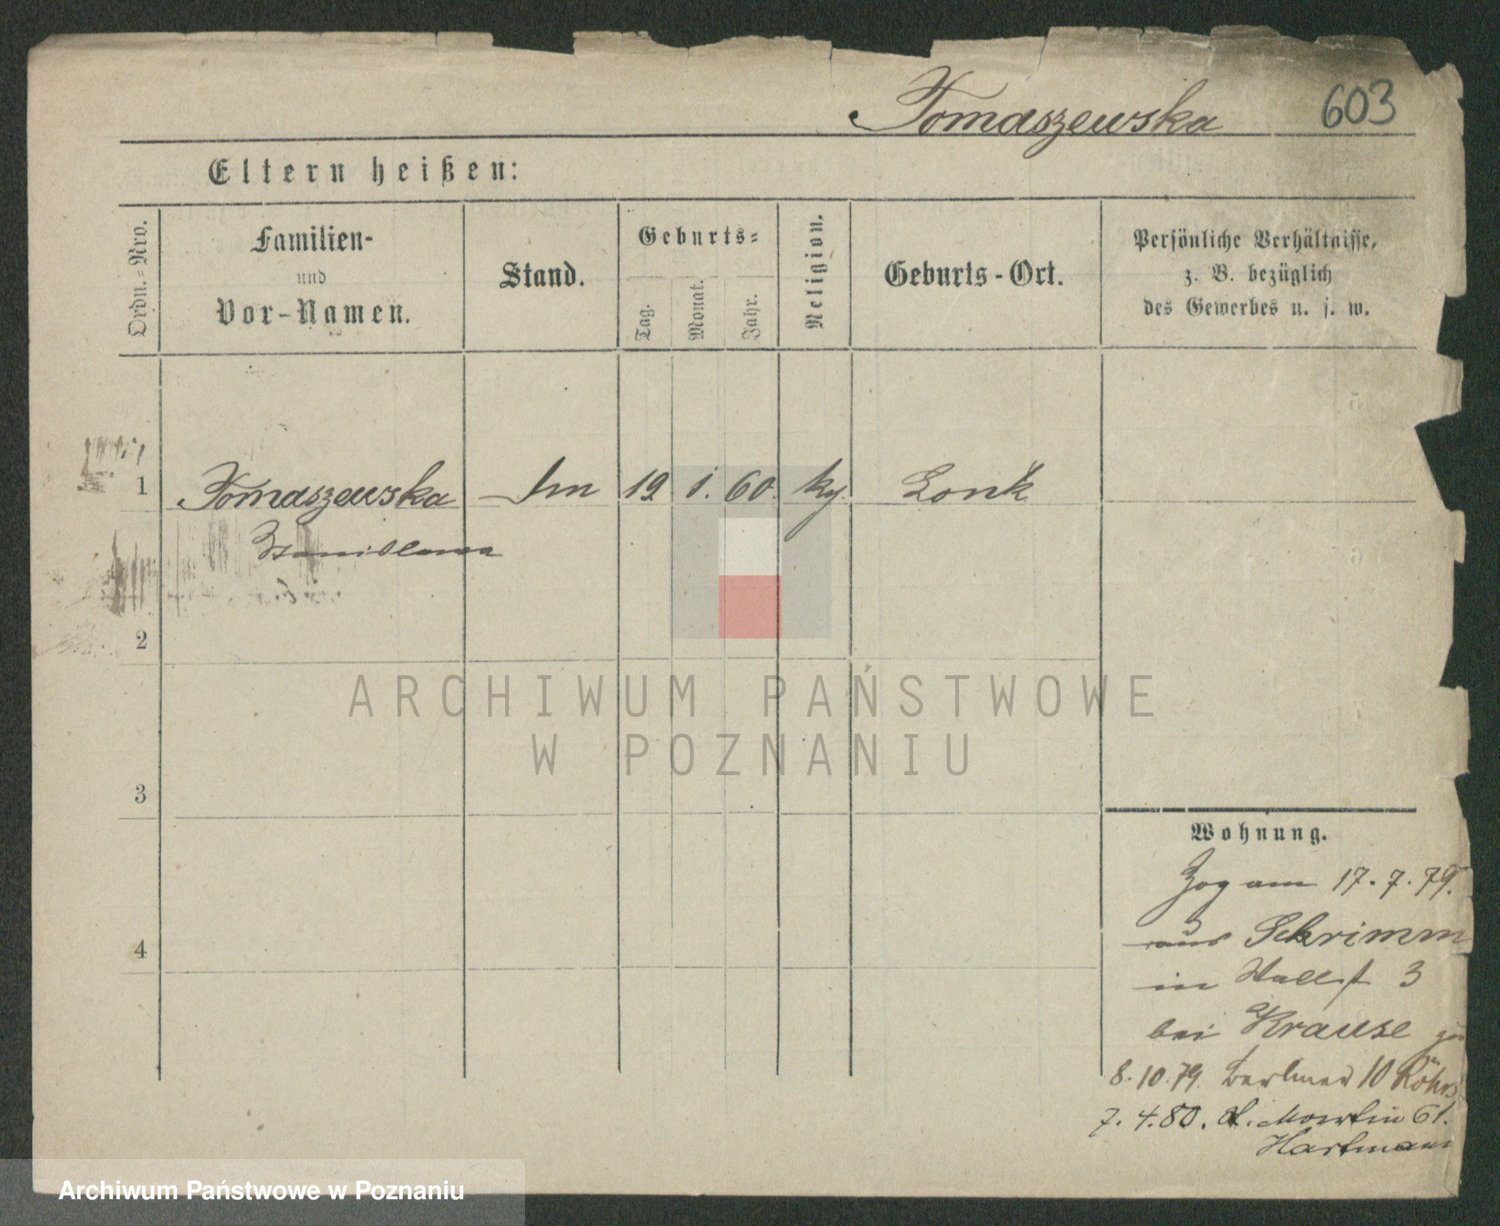 Tomaszewska 603
Eltern heißen:
Ordn.-Nro.
Familien-
und
Vor-Namen.
Stand.
Geburts-
Tag.
Monat.
Jahr.
Religion.
Geburts-Ort.
Persönliche Verhältnisse,
z. B. bezüglich
des Gewerbes u. s. w.
1 Tomaszewska 19 1. 60.
Stanislawa
2
3
4
Wohnung.
Zog am 17.7.79.
aus Schrimm
in Wallst 3
bei Krause
8.10.79. Berliner 10
7.4.80. St. Martin 61.
Hartmann
ARCHIWUM PAŃSTWOWE
W POZNANIU
Archiwum Państwowe w Poznaniu